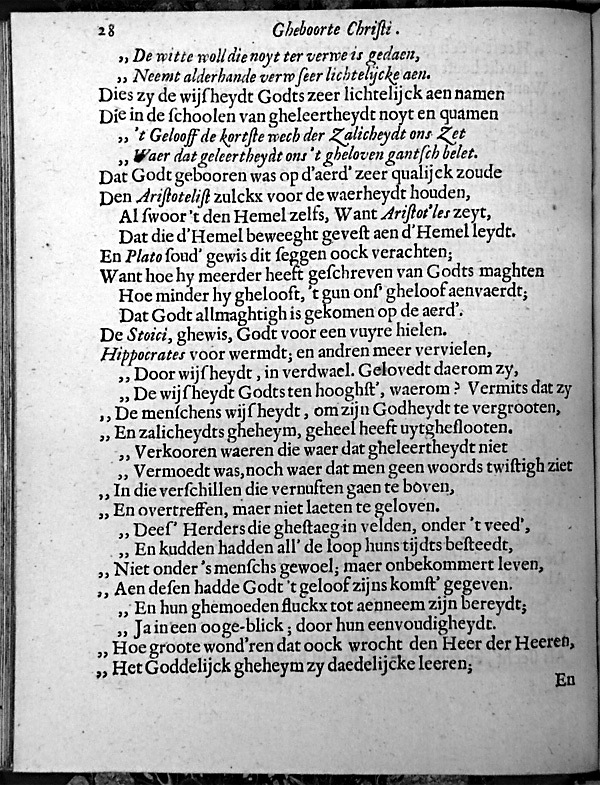 28 Gheboorte Christi.
,, De witte woll die noyt ter verwe is gedaen,
,, Neemt alderhande verw seer lichtelijcke aen.
Dies zy de wijsheydt Godts zeer lichtelijck aen namen
Die in de schoolen van gheleertheydt noyt en quamen
,, 't Gelooff de kortste wech der Zalicheydt ons Zet
,, Waer dat geleertheydt ons 't gheloven gantsch belet.
Dat Godt gebooren was op d'aerd' zeer qualijck zoude
Den Aristotelist zulckx voor de waerheydt houden,
Al swoor 't den Hemel zelfs, Want Aristot'les zeyt,
Dat die d'Hemel beweeght gevest aen d'Hemel leydt.
En Plato soud' gewis dit seggen oock verachten;
Want hoe hy meerder heeft geschreven van Godts maghten
Hoe minder hy ghelooft, 't gun ons' gheloof aenvaerdt;
Dat Godt allmaghtigh is gekomen op de aerd'.
De Stoici, ghewis, Godt voor een vuyre hielen.
Hippocrates voor wermdt; en andren meer vervielen,
,, Door wijsheydt, in verdwael. Gelovedt daerom zy,
,, De wijsheydt Godts ten hooghst', waerom? Vermits dat zy
,, De menschens wijsheydt, om zijn Godheydt te vergrooten,
,, En zalicheydts gheheym, geheel heeft uytghesslooten.
,, Verkooren waeren die waer dat gheleertheydt niet
,, Vermoedt was, noch waer dat men geen woords twistigh ziet
,, In die verschillen die vernuften gaen te boven,
,, En overtreffen, maer niet laeten te geloven.
,, Dees' Herders die ghestaeg in velden, onder 't veed',
,, En kudden hadden all' de loop huns tijdts besteedt,
,, Niet onder 's menschs gewoel; maer onbekommert leven,
,, Aen desen hadde Godt 't geloof zijns komst' gegeven.
,, En hun ghemoeden fluckx tot aenneem zijn bereydt;
,, Ja in een ooge-blick; door hun eenvoudigheydt.
,, Hoe groote wond'ren dat oock wrocht den Heer der Heeren,
,, Het Goddelijck gheheym zy daedelijcke leeren;
En